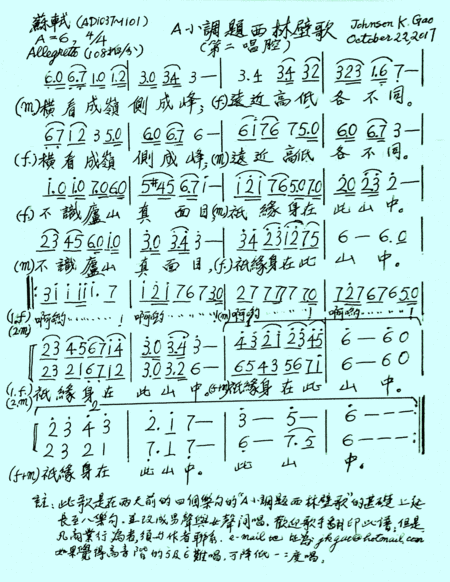 蘇軾 (AD1037-1101)
A小調題西林壁歌
Johnson K. Gao
A=6, 4/4
(第二唱腔)
October 23, 2017
Allegretto (108拍/分)
6.0 6.7 1.0 1.2 | 3.0 34 3 — | 3.4 34 32 | 323 1.6 7 — |
(m)橫看成嶺 側成峰; (f)遠近高低 各不同。
67 12 3 5.0 | 6.0 6.7 6 — | 6176 75.0 | 6.0 6.7 3 — |
(f.)橫看成嶺 側成峰; (m)遠近高低 各不同。
1.0 1.0 7.0 6.0 | 5#45 6.7 1 — | 121 765.07.0 | 2.0 23 2 — |
(f.)不識廬山 真面目(m)祇緣身在 此山中。
23 45 6.0 1.0 | 3.0 3.4 3 — | 34 231275 | 6 — 6.0 |
(m)不識廬山 真面目, (f.)祇緣身在此 山中。
‖: 31 11 11. 7 | 121 767 30 | 27 77 77 70 | 727676 50 |
(1.f.)
(2.m)
啊約……! 啊約……!(m)啊約……! 啊約……!
23 4567 14 | 3.0 3.4 3 — | 43 21 2345 | 6 — 60
23 216712 | 3.0 3.2 6 — | 65 43 5671 | 6 — 60
(1.f.)
(2.m)
祇緣身在 此山中。祇緣身在此 山中。
2 3 4 3 | 2. 1 7 — | 3 — 5 — | 6 — — — :‖
2 3 2 1 | 7. 1 7 — | 6 — 7.5 | 6 — — —
(f+m)祇緣身在 此山中。 此山 中。
註: 此歌是在兩天前的四個樂句的"A小調題西林壁歌"的基礎上延
長至八樂句, 並改成男聲與女聲问唱。歡迎歌手翻印此譜; 但是,
凡商業行為者, 須与作者聯系, e-mail
如果覺得高音階的5及6難唱, 可降低一二度唱。